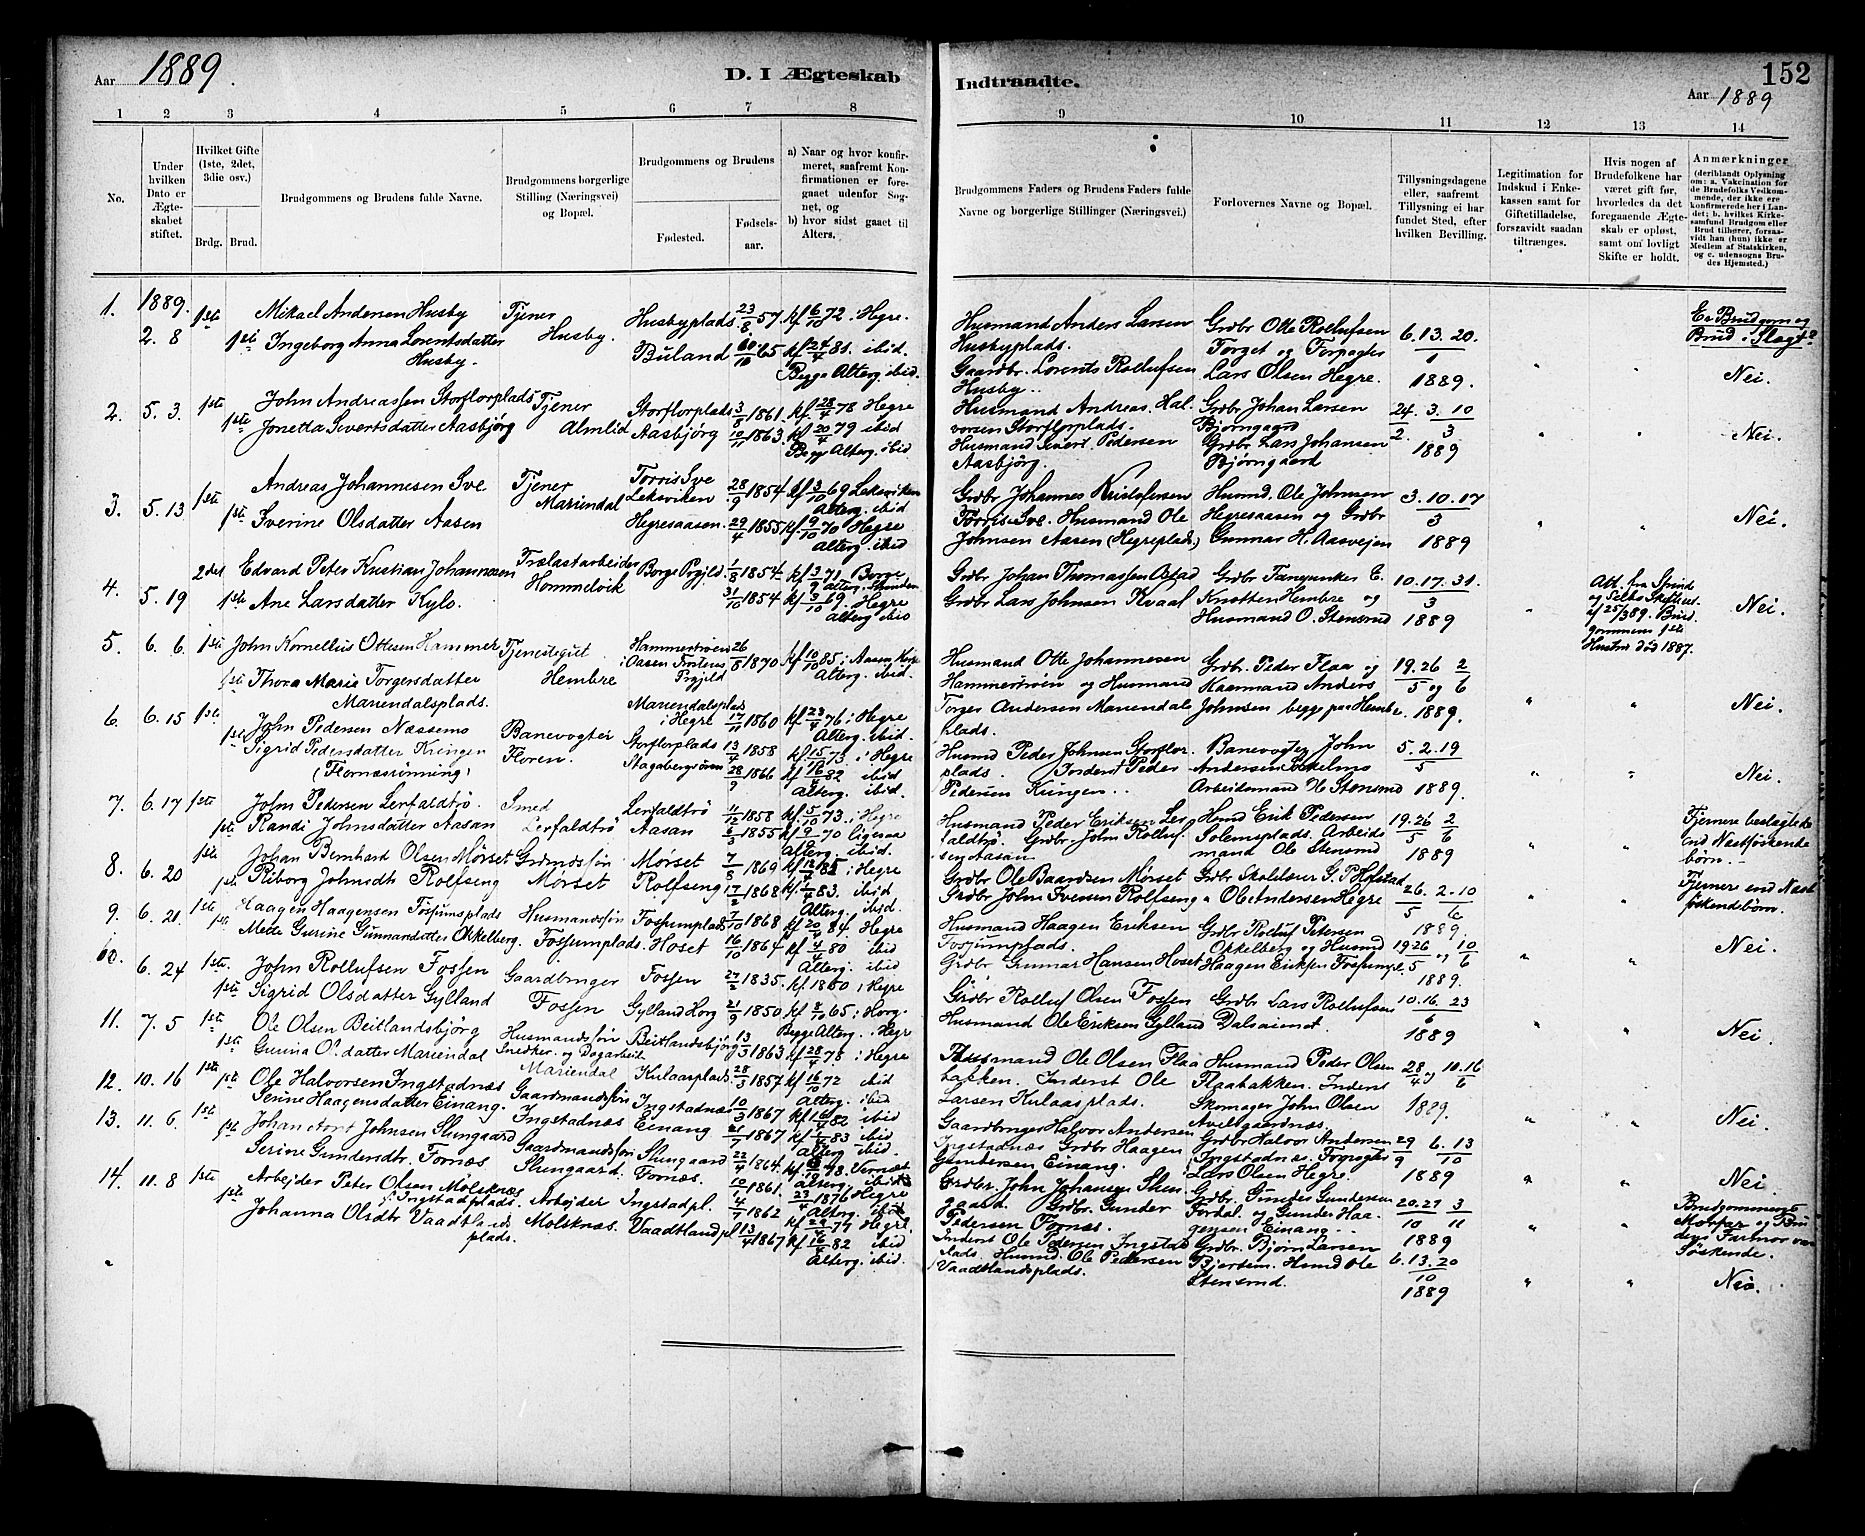 Aar 1889.
D. I Ægteskab
Indtraadte.
152
Aar 1889
1 2 3 4 5 6 7 8
9 10 11 12 13 14
No.
Under hvilken Dato er Ægteskabet stiftet.
Hvilket Gifte (1ste, 2det, 3die osv.)
Brdg. Brud.
Brudgommens og Brudens fulde Navne.
Brudgommens borgerlige Stilling (Næringsvei) og Bopæl.
Brudgommens og Brudens
Fødested.
Fødselsaar.
a) Naar og hvor konfirmeret, saafremt Konfirmationen er foregaaet udenfor Sognet, og
b) hvor sidst gaaet til Alters.
Brudgommens Faders og Brudens Faders fulde Navne og borgerlige Stillinger (Næringsvei.)
Forlovernes Navne og Bopæl.
Tillysningsdagene eller, saafremt Tillysning ei har fundet Sted, efter hvilken Bevilling.
Legitimation for Indskud i Enkekassen samt for Giftetilladelse, forsaavidt saadan tiltrænges.
Hvis nogen af Brudefolkene har været gift før, hvorledes da det foregaaende Ægteskab er opløst, samt om lovligt Skifte er holdt.
Anmærkninger (deriblandt Oplysning om: a. Vakcination for de Brudefolks Vedkommende, der ikke ere konfirmerede her i Landet; b. hvilket Kirkesamfund Brudgom eller Brud tilhører, forsaavidt han (hun) ikke er Medlem af Statskirken, og c. udensogns Brudes Hjemsted.)
1. 1889. 1ste Mikael Andersen Husby Tjener Husbyplads 23/8 57. kf 6/10 72 i Hegre.
2. 8 1ste Ingeborg Anna Lorentsdatter Husby. Buland 65 kf 24/4 81. ibid.
Husby. Begge Alterg. ibid.
Husmand Anders Larsen Grdbr Otte Rollufsen 6.13.20. Er Brudgom og
Husbyplads. Forget og Forpagter 1 Brud i Slægt?
Gaardbr. Lorents Rollufsen Lars Olsen Hegre. 1889. Nei.
Husby.
2. 5. 3. 1ste John Andreassen Storflorplads Tjener Storflorplads 3/8 1861. kf 28/4 78 Hegre
1ste Jonetta Sivertsdatter Aasbjørg Almlid Aasbjørg 10/11 1863. kf 20/4 79 ibid
Begge Alterg. ibid
Husmand Andreas Halvorsen Storflorplads. Grdbr Johan Larsen Bjørngaard 24. 3. 10
Husmand Sivert Pedersen Aasbjørg. Grdbr Lars Johansen Bjørngaard 2. 3 1889 Nei.
3. 5. 13 1ste Andreas Johannesen Sve Tjener Torris Sve Leksviken 28/9 1854 kf 3/10 69 Leksviken
Alterg. ibid
1ste Iverine Olsdatter Aasen Mariendal Hegresaasen. 29/4 1855 kf 9/10 70 Hegre
Alterg. ibid
Grdbr Johannes Kristofersen Husmd. Ole Johnsen 3.10.17
Torris Sve. Husmand Ole Hegresaasen og Grdbr 3
Johnsen Aasen (Hegreplads) Gunnar H. Aasvejen 1889 Nei.
4. 5. 19 2det Edvard Peter Kristian Johannesen Trælastarbeider Borge Prgjld. 1/8 1854 kf 3/9 71 Borge
1ste Ane Larsdatter Kylo. Hommelvik 31/10 1854 kf 3/10 69. Hegre
Alterg. ibid
Grdbr Johan Thomassen 10. 17. 31.
Grdbr Lars Johnsen Kvaal Knotten Hembre og 3
Husmand O. Stensrud 1889 Nei.
Att. fra Strind og Selbo Skifteret af 25/3 89. Brudgommens 1ste Hustru død 1887.
5. 6. 6. 1ste John Kornellius Ottesen Hammer Tjenestegut Hammertrøen i Aasen Prgjld 26/8 1870 kf 10/10 85 i Aasen
Alterg. ibid.
1ste Thora Marie Torgersdatter Mariendalsplads. Hembre Mariendalsplads i Hegre 17/11 1860 kf 23/4 76 i Hegre
Alterg. ibid.
Husmand Otte Johannesen Grdbr. Peder Flaa og 19.26 2
Hammertrøen og Husmand Kaarmand Anders 5 og 6
Torger Andersen Mariendalsplads. Johnsen begge paa Hembre. 1889. Nei.
6. 6. 15 1ste John Pedersen Næssemo Banevogter Storflorplads 13/4 1858 kf 15/4 73. i Hegre
1ste Sigrid Pedersdatter Kringen Floren. Stagabergrøen 28/9 1866 kf 16/4 82 ibid
(Flornæsrønning) Alterg. ibid.
Husmd Peder Johnsen Storflorplads. Banevogter John 5. 2. 19
Inderst Peder Andersen 5
Pedersen Kringen.. Arbeidsmand H. Stensrud 1889. Nei.
7. 6. 17 1ste John Pedersen Lerfaldtrø. Smed Lerfaldtrø 11/12 1858 kf 5/10 73. i Hegre
1ste Randi Johnsdatter Aasan Lerfaldtrø Aasan 1855 kf 9/10 70 ligesaa
Alterg. ibid.
Husmand Peder Eriksen Lerfaldtrø. Husmd Erik Pedersen 19.26 2
Grdbr John Rollufsen Aasan Solemsplads. Arbeidsmand Ole Stensrud 5 6 1889
Fjernere beslægtede end Næstsøskendebørn.
8. 6. 20 1ste Johan Bernhard Olsen Mørset Grdmdsøn Mørset 7/8 1869 kf 85 i Hegre
1ste Riborg Johnsdtr Rolfseng Mørset Rolfseng 17/2 1868 kf 83. ibid
Alterg. ibid.
Grdbr Ole Baardsen Mørset Grdbr Skolelærer G. P. Hofstad 26. 2. 10
Grdbr John Iversen Rolfseng Ole Andersen Hegre 5 6 1889.
Fjerner end Næstsøskendebørn.
9. 6. 21. 1ste Haagen Haagensen Fossumsplads Husmandssøn Fossumplads 7/10 1868 kf 20/4 84. Hegre
1ste Mette Gurine Gunnarsdatter Okkelberg. Fossumplads. Hoset 16/10 1864 kf 4/4 80 ibid
Alterg. ibid
Husmand Haagen Eriksen Fossumplads. Grdbr Rolluf Petersen Okkelberg og Husmd 19 26 og 10
Grdbr Gunnar Hansen Hoset Haagen Eriksen Fossumpl. 5 6 1889. Nei.
10. 6. 24 1ste. John Rollufsen Fossen Gaardbruger Fossen 27/2 1835. kf. 1850 i Hegre
1ste Sigrid Olsdatter Gylland Fossen Gylland Horg 21/9 1850 kf 8/10 65 i Horg.
Begge Alterg. i Hegre
Grdbr Rolluf Olsen Fossen Grdbr Lars Rollufsen 10. 16. 23
Husmand Ole Eriksen Gylland 6 1889 Nei.
11. 7. 5 1ste Ole Olsen Beitlandsbjørg Husmandssøn Beitlandsbjørg 13/3 1863 kf 28/4 78 i Hegre
1ste Gurina O.datter Mariendal Snedker og Dagarbeid. Mariendal Kulaasplads. 28/3 1857 kf 16/10 72 ibid
Alterg. ibid
Husmand Ole Olsen Flaabakken. Inderst Ole Husmand Peder Olsen 28 og 10.16
Larsen Kulaasplads. Flaabakken. Inderst Skomager John Olsen 4 6 1889.
12. 10. 16 1ste Ole Halvorsen Ingstadnæs Gaardmandssøn Ingstadnæs 10/3 1867 kf 82 ibid
1ste Serine Haagensdatter Einang. Ingstadnæs Einang 1867 kf 83 ibid
Alterg ibid.
Gaardbruger Halvor Andersen Ingstadnæs Grdbr Haagen Gundersen Einang. Grdbr Halvor Andersen 29 6. 13
Ingstadnæs. Forpagter Lars Olsen Hegre. 9 10 1889 Nei.
13. 11. 6. 1ste Johan Johnsen Slungaard Gaardmandssøn Slungaard 22/4 1864. kf 78. Vernæs
1ste Serine Gundersdtr. Fornæs Slungaard. Fornæs. 10/1 1861. kf 23/4 1876 Hegre
Alterg. ibid
Grdbr. John Johansen Slungaard. Grdbr. Gunder Pedersen Fornæs. Grdbr. Gunder Gundersen Fordal. og Gunder Haagensen Einang. 20. 27 3
10 11 1889
Nei.
Brudgommens Morfar og Brudens Farmor vare Søskende.
14. 11. 8 1ste Arbejder Peter Olsen Molsknæs Arbejder Ingstadpl. 4/7 1862 kf 77 Hegre.
i Ingstadplads.
1ste Johanna Olsdtr Vaadtlandsplads. Molsknæs. Vaadtlandpl 13/4 1867 kf 16/4 82 ibid
Alterg. ibid.
Inderst Ole Pedersen Ingstadplads. Husmd. Ole Pedersen Vaadtlandsplads. Grdbr. Bjørn Larsen Bjertem. Husmd Ole Stensrud. 6. 13. 20
10
1889
Nei.